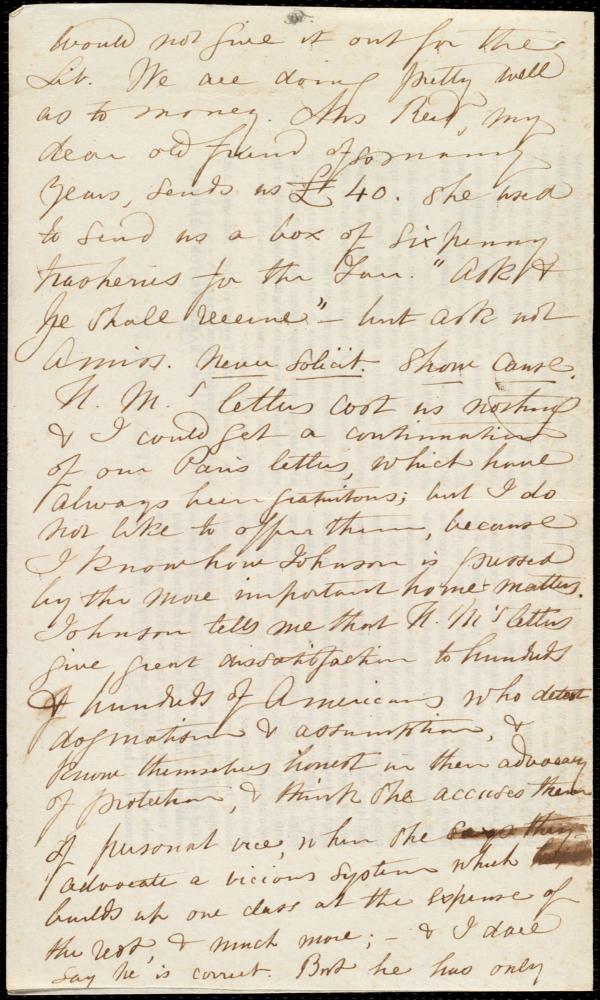 would not give it out for the
Lib. We are doing pretty well
as to money. Mrs Reid, my
dear old friend of so many
years, sends us £40. She used
to send us a box of sixpenny
trasheries for the Fair. "Ask &
ye shall receive" – but ask not
amiss. Never solicit. Show cause.
H. M.'s letters cost us nothing
& I could get a continuation
of our Paris letters, which have
always been gratuitous; but I do
not like to offer them, because
I know how Johnson is pressed
by the more important home-matters.
Johnson tells me that H. M's letters
give great dissatisfaction to hundreds
& hundreds of Americans who detest
dogmatism & assumption, &
know themselves honest in their advocacy
of protection, & think she accuses them
of personal vice, when she says they
advocate a vicious system which
builds up one class at the expense of
the rest, & much more; – & I dare
say he is correct. But he has only